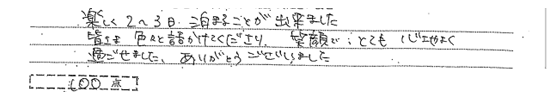 楽しく2~3日 泊まることが出来ました
皆さま 色々と話かけてくださり、笑顔で とても 心地よく
過ごせました、ありがとうございました
100 点